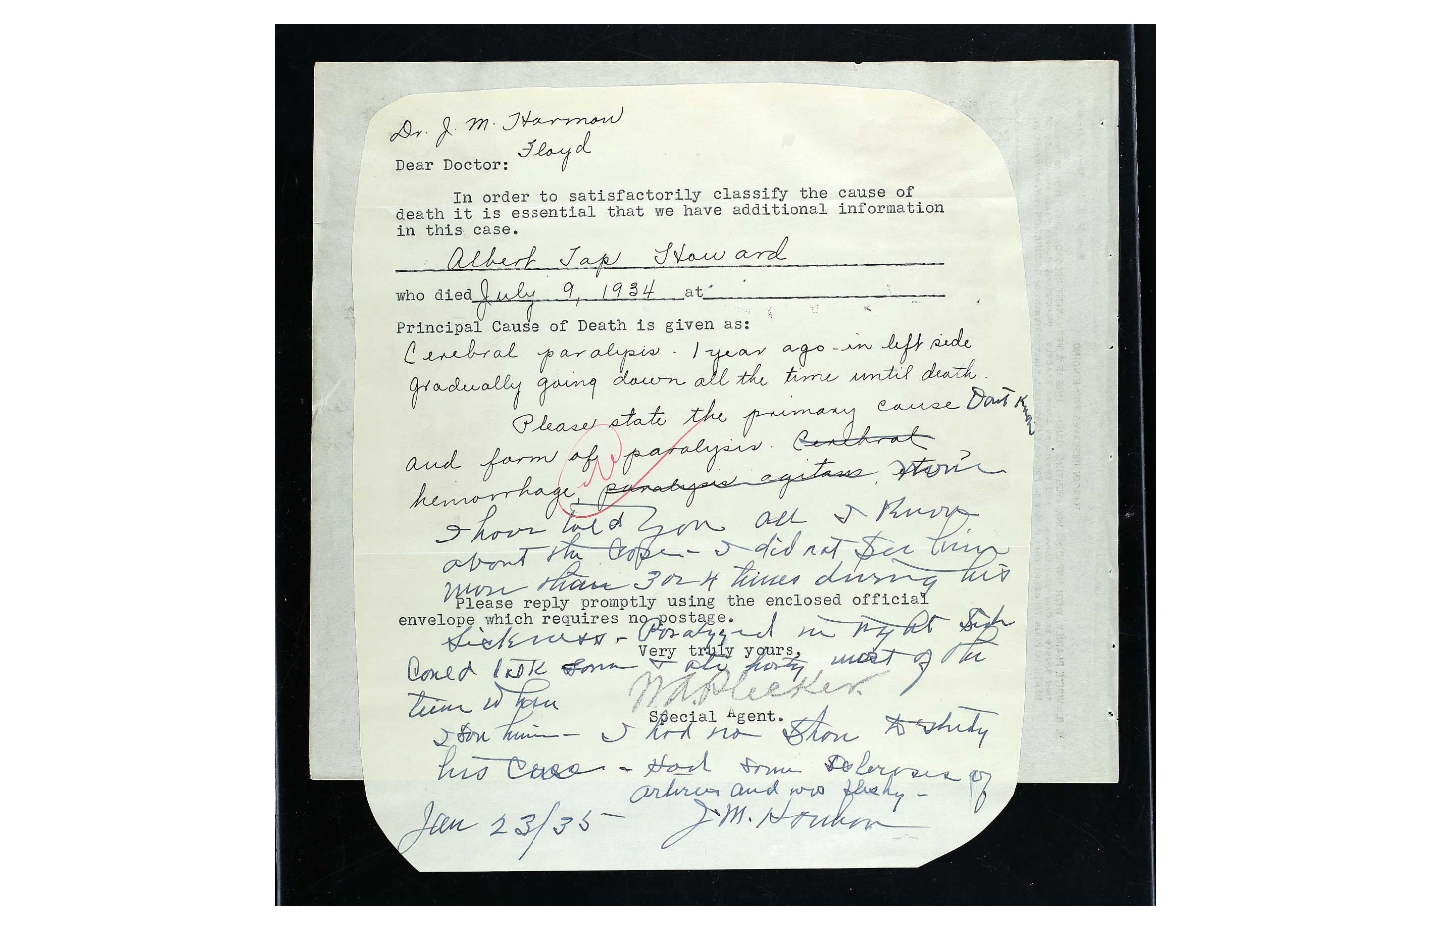 Dr. J. M. Harmon
Floyd
Dear Doctor:
In order to satisfactorily classify the cause of
death it is essential that we have additional information
in this case.
Albert Tap Howard
who died July 9, 1934 at
Principal Cause of Death is given as:
Cerebral paralysis. 1 year ago - in left side
gradually going down all the time until death.
Please state the primary cause Dont Know
and form of paralysis. Cerebral
hemorrhage, paralysis agitans,
I have told you all I Know
about the Case - I did not See him
more than 3 or 4 times during his
Please reply promptly using the enclosed official
envelope which requires no postage.
Sickness - Paralyzed in right Side
Very truly yours,
Could talk Some & ate most of the
time when
W A Plecker
Special Agent.
I Saw him - I had no Show to Study
his Case - Had Some Sclerosis of
arteries and was fleshy -
Jan 23/35 J. M. Harmon